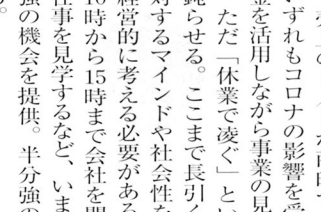 いずれもコロナの影響を受
金を活用しながら事業の見
ただ「休業で凌ぐ」とい
鈍らせる。ここまで長引く
対するマインドや社会性を
経営的に考える必要がある
10時から15時まで会社を開
仕事を見学するなど、いま
強の機会を提供。半分強の